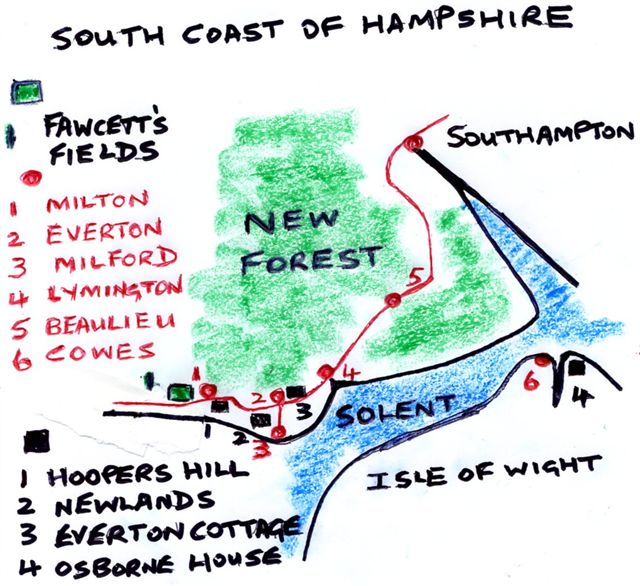 SOUTH COAST OF HAMPSHIRE
FAWCETT'S
FIELDS
1 MILTON
2 EVERTON
3 MILFORD
4 LYMINGTON
5 BEAULIEU
6 COWES
SOUTHAMPTON
NEW
FOREST
5
4
1
2
3
2
3
1
6
4
SOLENT
ISLE OF WIGHT
1 HOOPERS HILL
2 NEWLANDS
3 EVERTON COTTAGE
4 OSBORNE HOUSE